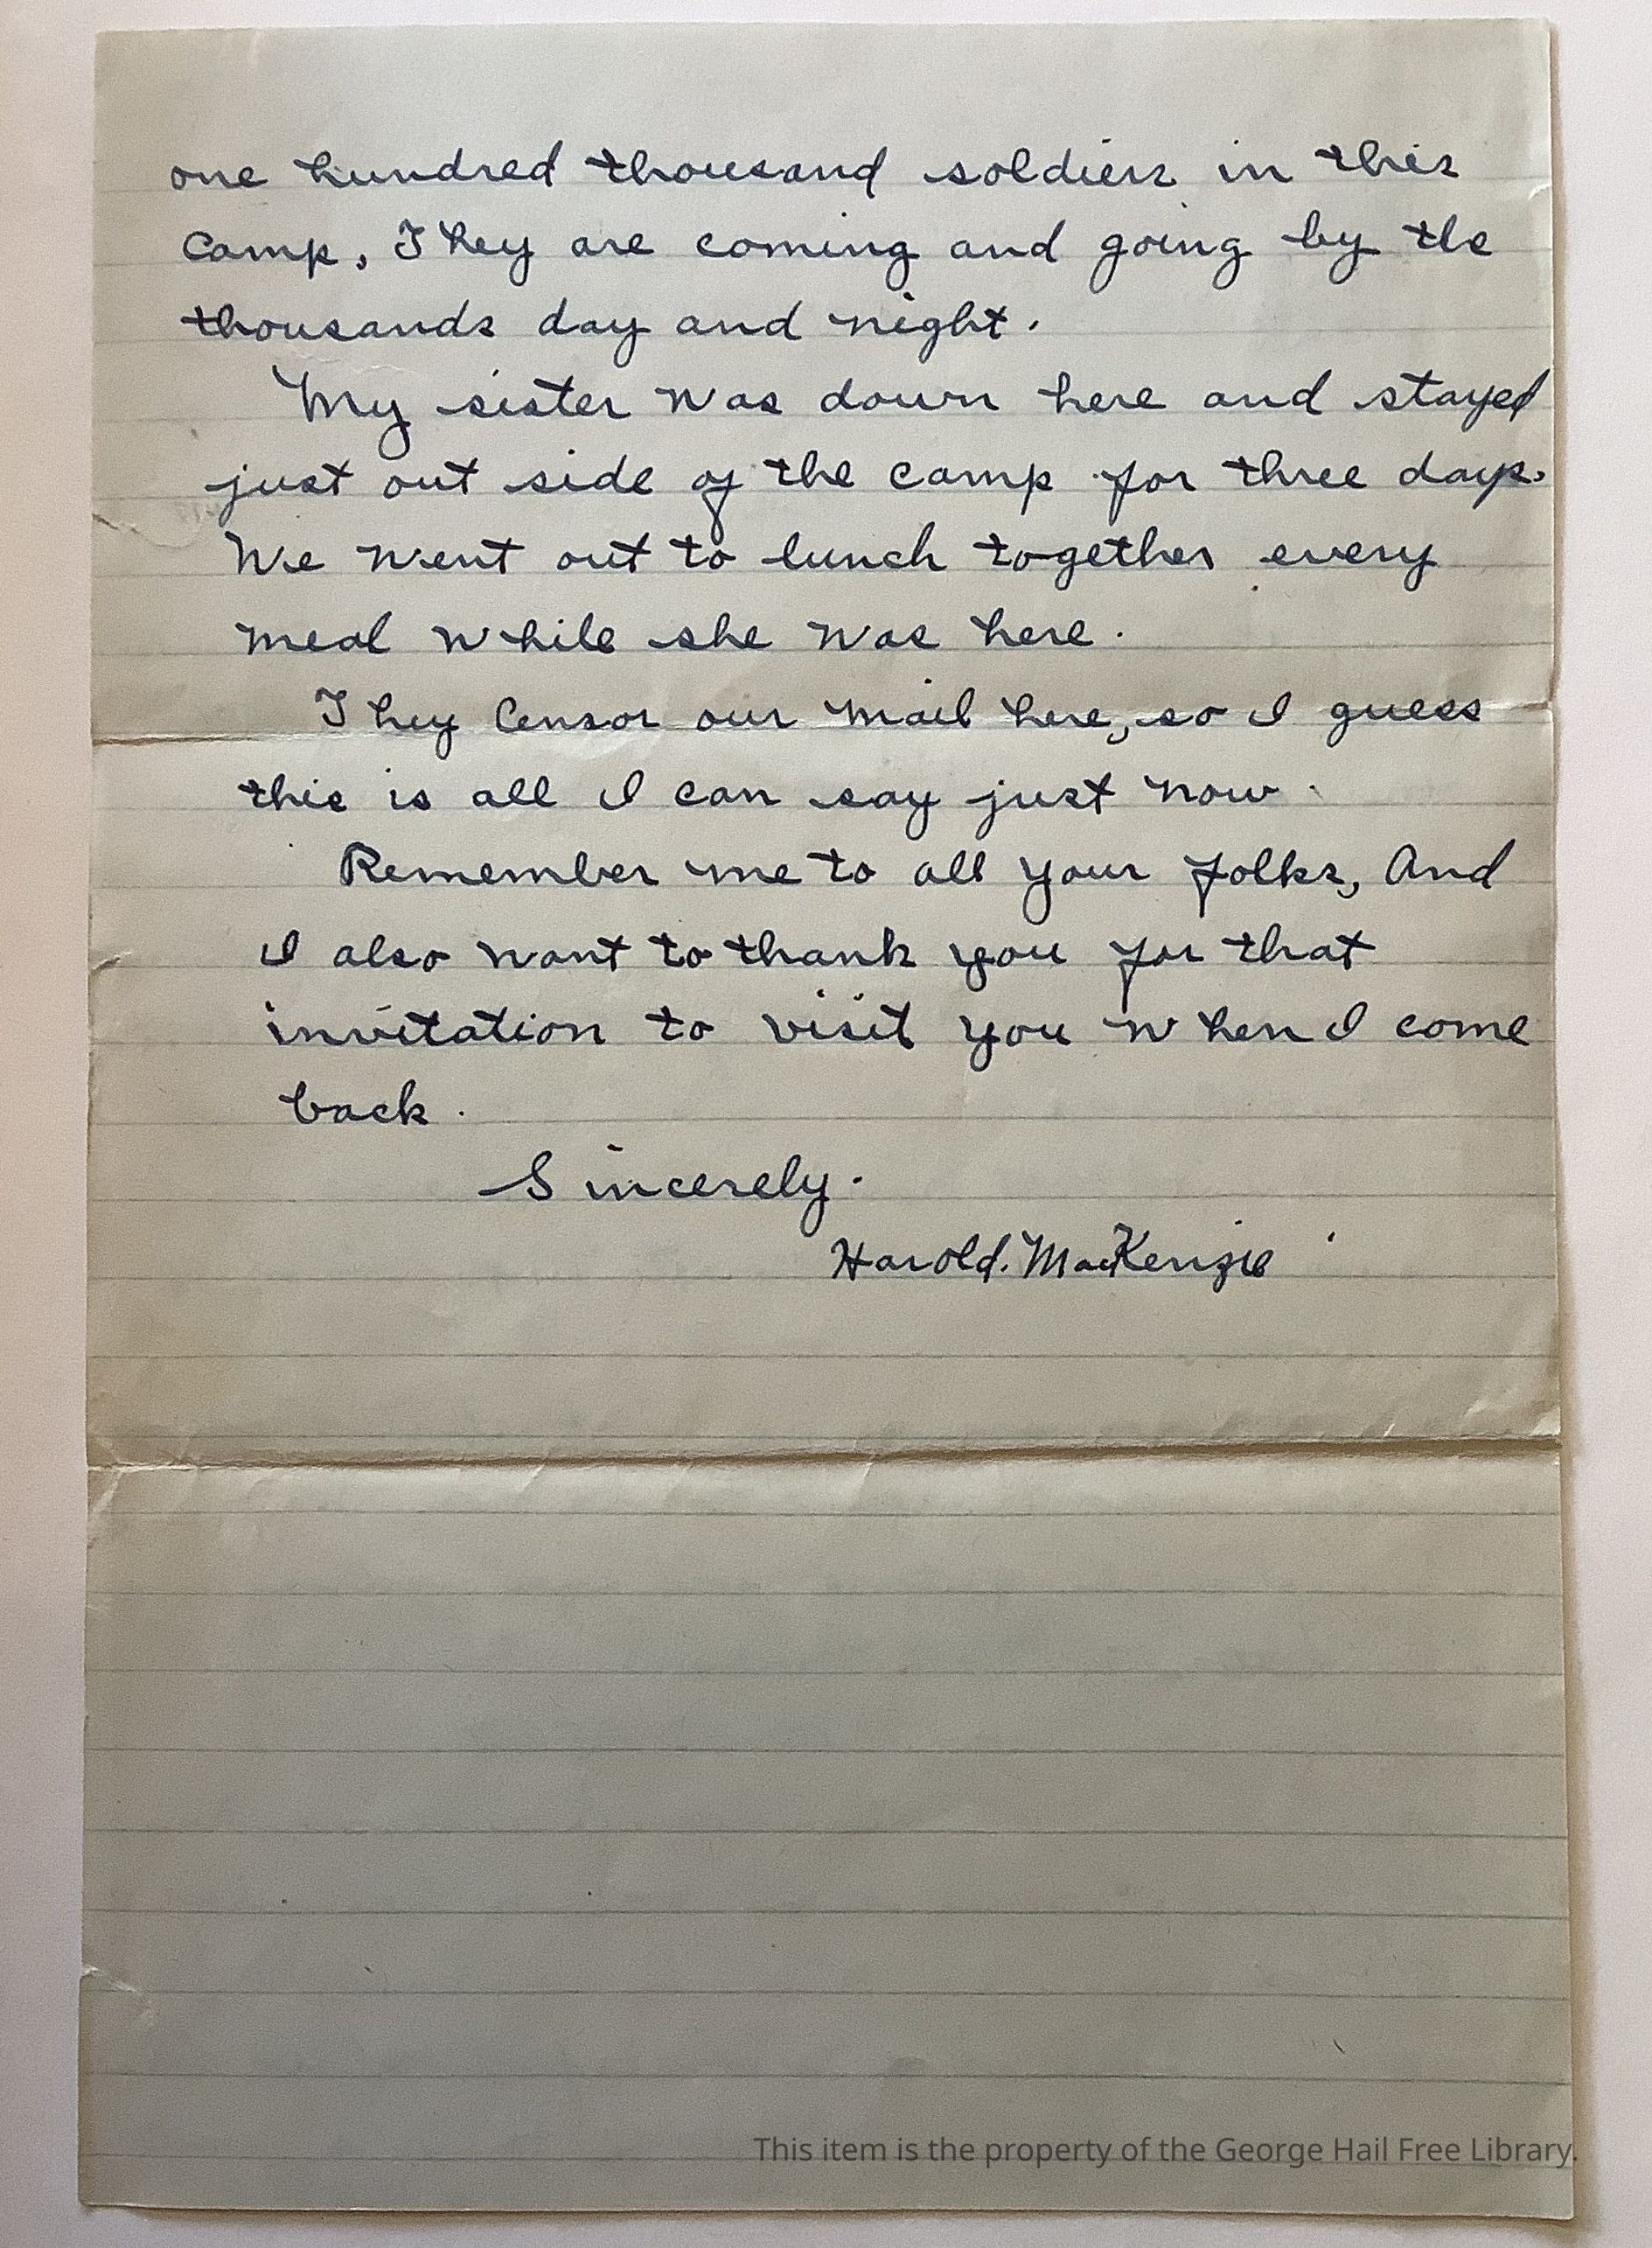 one hundred thousand soldiers in this
camp, They are coming and going by the
thousands day and night.
My sister was down here and stayed
just out side of the camp for three days.
We went out to lunch together every
meal while she was here.
They Censor our mail here, so I guess
this is all I can say just now.
Remember me to all your folks, And
I also want to thank you for that
invitation to visit you when I come
back.
Sincerely.
Harold. MacKenzie
This item is the property of the George Hail Free Library.